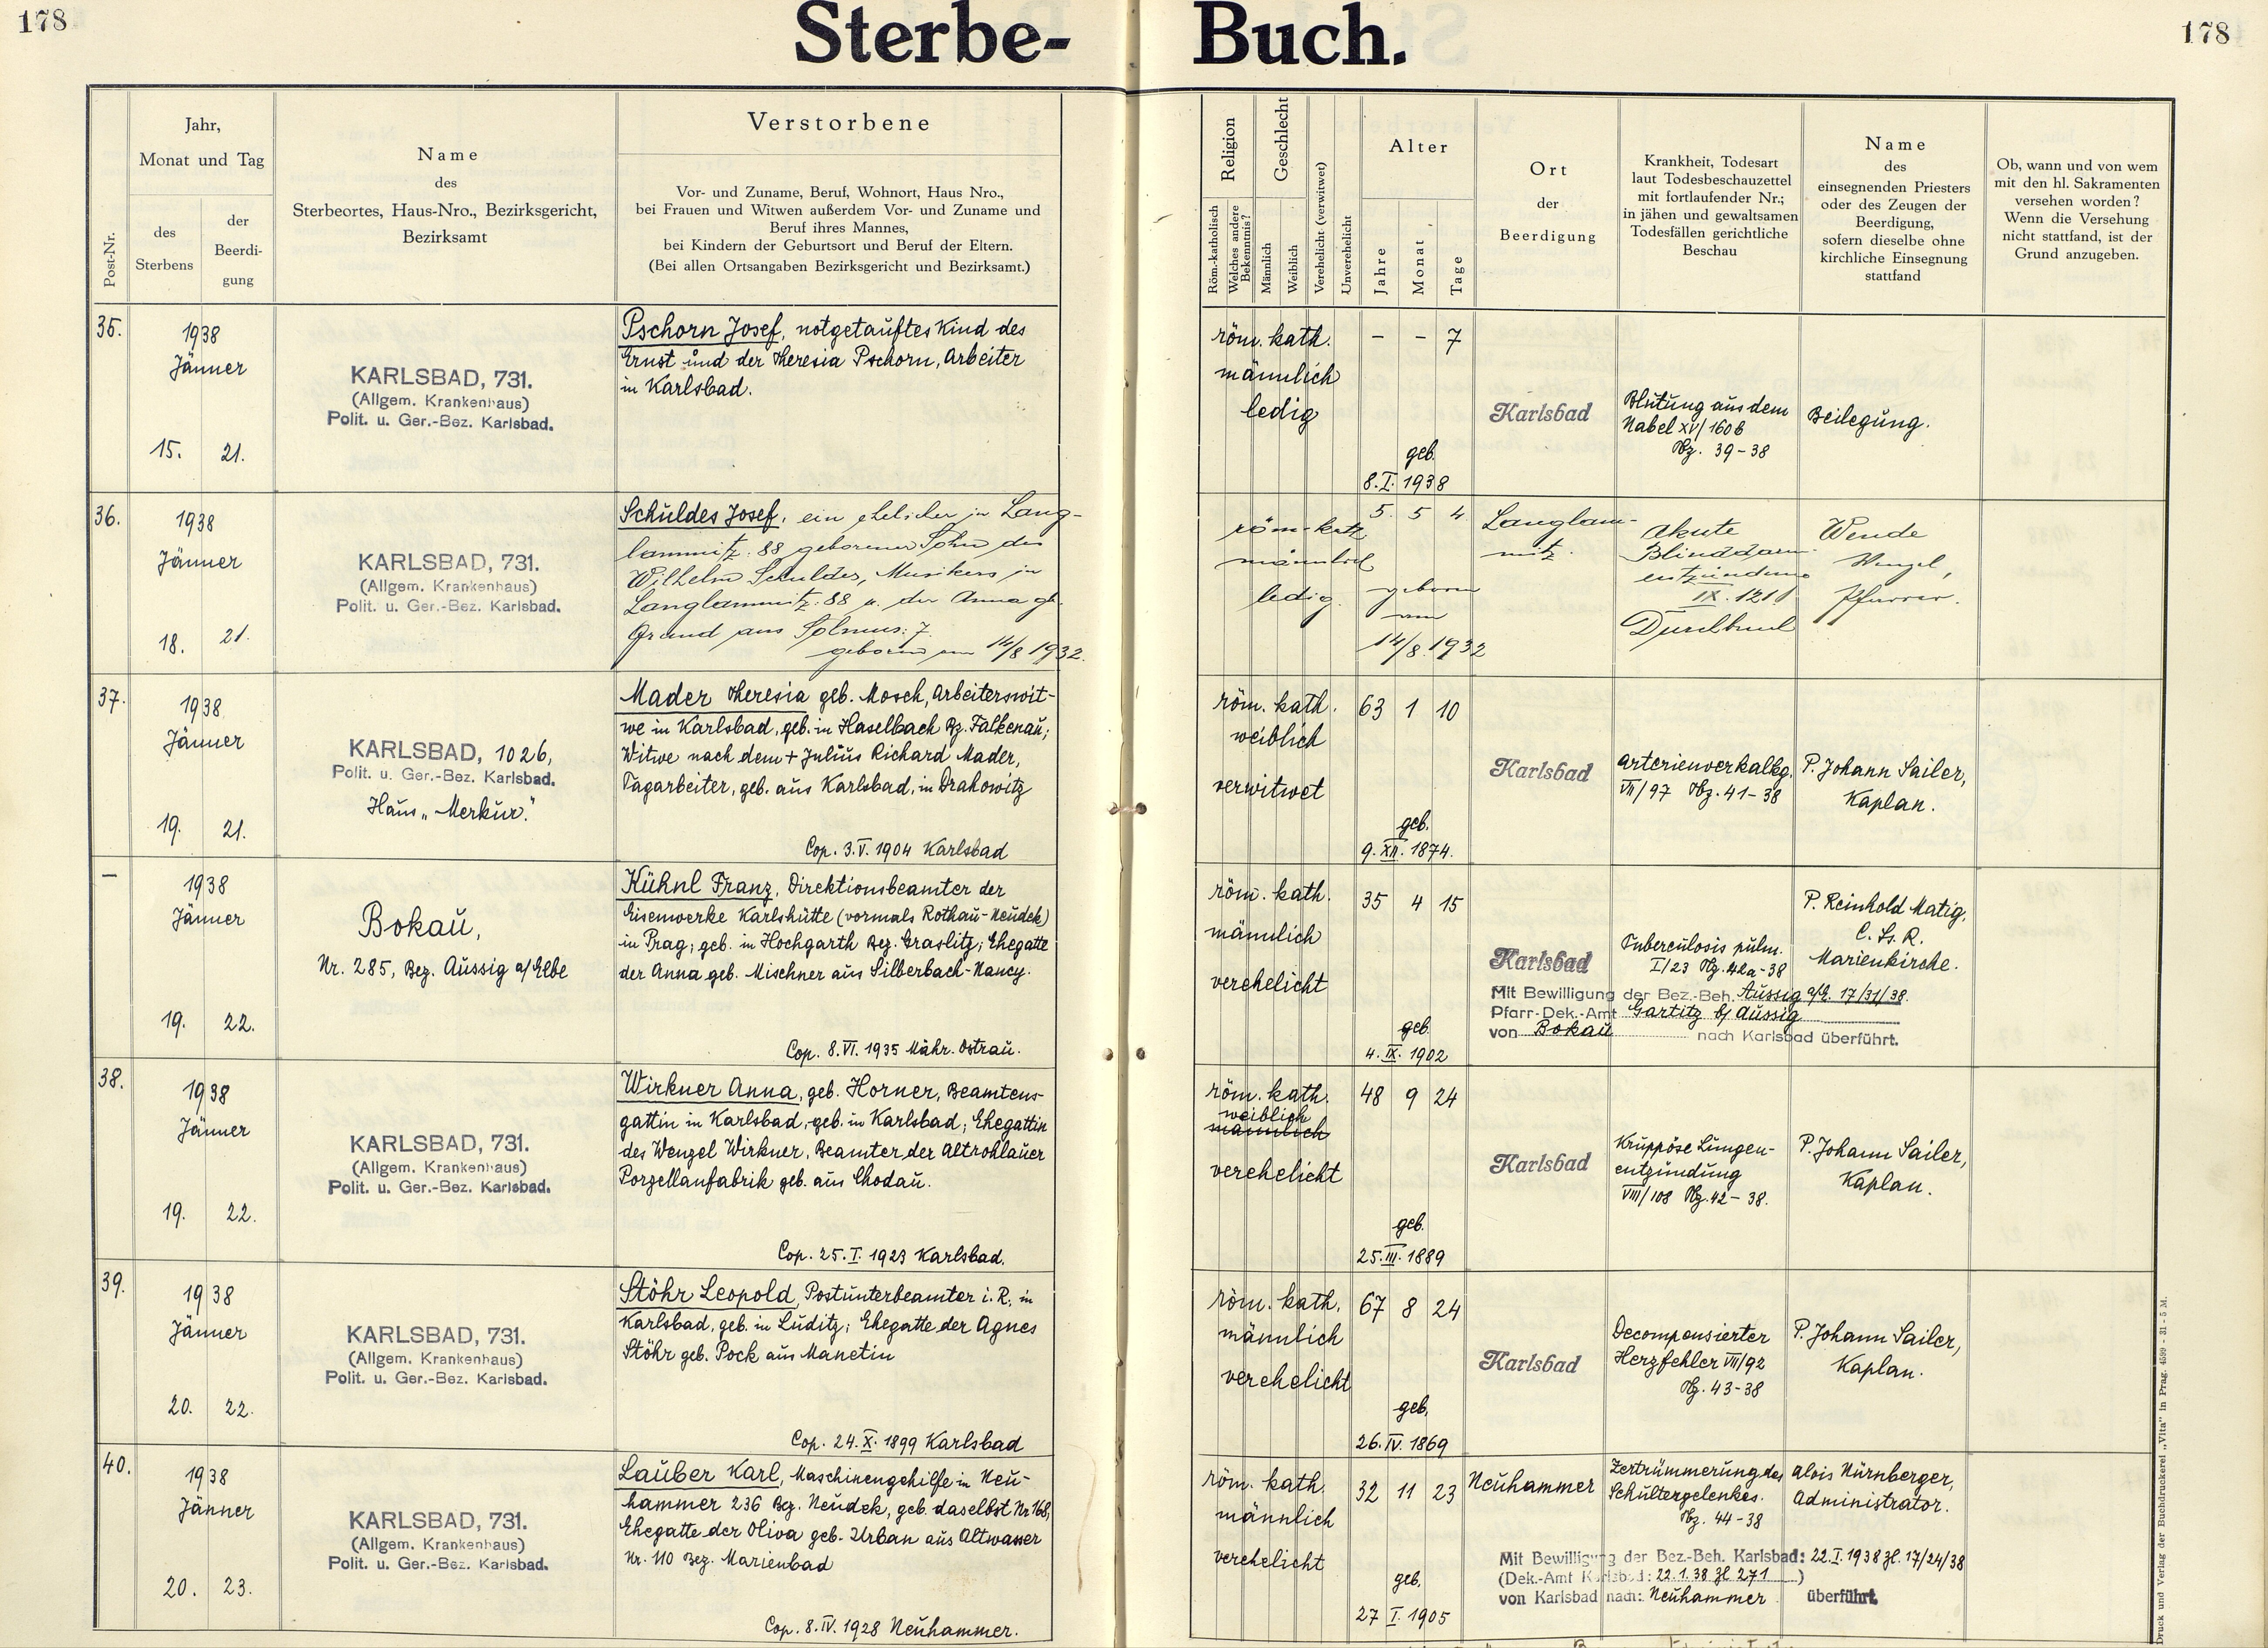 178
Sterbe- Buch.
178
Post-Nr.
Jahr,
Monat und Tag
des
Sterbens
der
Beerdi-
gung
Name
des
Sterbeortes, Haus-Nro., Bezirksgericht,
Bezirksamt
Verstorbene
Vor- und Zuname, Beruf, Wohnort, Haus Nro.,
bei Frauen und Witwen außerdem Vor- und Zuname und
Beruf ihres Mannes,
bei Kindern der Geburtsort und Beruf der Eltern.
(Bei allen Ortsangaben Bezirksgericht und Bezirksamt.)
Religion
Röm.-katholisch
Welches andere
Bekenntnis?
Geschlecht
Männlich
Weiblich
Verehelicht (verwitwet)
Unverehelicht
Alter
Jahre
Monat
Tage
Ort
der
Beerdigung
Krankheit, Todesart
laut Todesbeschauzettel
mit fortlaufender Nr.;
in jähen und gewaltsamen
Todesfällen gerichtliche
Beschau
Name
des
einsegnenden Priesters
oder des Zeugen der
Beerdigung,
sofern dieselbe ohne
kirchliche Einsegnung
stattfand
Ob, wann und von wem
mit den hl. Sakramenten
versehen worden?
Wenn die Versehung
nicht stattfand, ist der
Grund anzugeben.
35.
1938
Jänner
15. 21.
KARLSBAD, 731.
(Allgem. Krankenhaus)
Polit. u. Ger.-Bez. Karlsbad.
Pschorn Josef, notgetauftes Kind des
Ernst und der Theresia Pschorn, Arbeiter
in Karlsbad.
röm. kath.
männlich
ledig
- - 7
geb.
8. I. 1938
Karlsbad
Blutung aus dem
Nabel XV/160b
39-38
Beilegung.
36.
1938
Jänner
18. 21.
KARLSBAD, 731.
(Allgem. Krankenhaus)
Polit. u. Ger.-Bez. Karlsbad.
Schuldes Josef, ein ehelicher in Lang-
lammitz: 88 geborener Sohn des
Wilhelm Schuldes, Musikers in
Langlammitz: 88 u. der Anna gb.
Grund aus Solmus: 7.
geboren am 14/8 1932.
röm-kath
männlich
ledig.
5. 5 4
geboren
am
14/8. 1932
Langlam-
mitz.
akute
Blinddarm-
entzündung
IX. 121
Durchbruch
Wende
Wenzel,
Pfarrer.
37.
1938
Jänner
19. 21.
KARLSBAD, 1026,
Polit. u. Ger.-Bez. Karlsbad.
Haus „Merkur."
Mader Theresia geb. Mosch, Arbeiterswit-
we in Karlsbad, geb. in Haselbach Bz. Falkenau;
Witwe nach dem + Julius Richard Mader,
Tagarbeiter, geb. aus Karlsbad, in Drahowitz
Cop. 3. V. 1904 Karlsbad
röm. kath.
weiblich
verwitwet
63 1 10
geb.
9. XII. 1874.
Karlsbad
Arterienverkalkg.
VII/97 41-38
P. Johann Sailer,
Kaplan.
—
1938
Jänner
19. 22.
Bokau,
Nr. 285, Bez. Aussig a/Elbe
Kühnl Franz, Direktionsbeamter der
Eisenwerke Karlshütte (vormals Rothau-Neudek)
in Prag; geb. in Hochgarth Bez. Graslitz; Ehegatte
der Anna geb. Mischner aus Silberbach-Nancy.
Cop. 8. VI. 1935 Mähr. Ostrau.
röm. kath.
männlich
verehelicht
35 4 15
geb.
4. IX. 1902
Karlsbad
Tuberculosis pulm.
I/23 42a-38
P. Reinhold Matig,
C. Ss. R.
Marienkirche.
Mit Bewilligung der Bez.-Beh. Aussig a/E. 17/31/38.
Pfarr-Dek.-Amt Gartitz b/ Aussig
von Bokau nach Karlsbad überführt.
38.
1938
Jänner
19. 22.
KARLSBAD, 731.
(Allgem. Krankenhaus)
Polit. u. Ger.-Bez. Karlsbad.
Wirkner Anna, geb. Horner, Beamtens-
gattin in Karlsbad, geb. in Karlsbad; Ehegattin
des Wenzel Wirkner, Beamter der Altrohlauer
Porzellanfabrik geb. aus Chodau.
Cop. 25. I. 1923 Karlsbad.
röm. kath.
weiblich
männlich
verehelicht
48 9 24
geb.
25. III. 1889
Karlsbad
Kruppöse Lungen-
entzündung
VIII/108 42-38.
P. Johann Sailer,
Kaplan.
39.
1938
Jänner
20. 22.
KARLSBAD, 731.
(Allgem. Krankenhaus)
Polit. u. Ger.-Bez. Karlsbad.
Stöhr Leopold, Postunterbeamter i. R., in
Karlsbad, geb. in Luditz; Ehegatte der Agnes
Stöhr geb. Pock aus Manetin
Cop. 24. X. 1899 Karlsbad
röm. kath.
männlich
verehelicht
67 8 24
geb.
26. IV. 1869
Karlsbad
Decompensierter
Herzfehler VII/92
43-38
P. Johann Sailer,
Kaplan.
40.
1938
Jänner
20. 23.
KARLSBAD, 731.
(Allgem. Krankenhaus)
Polit. u. Ger.-Bez. Karlsbad.
Lauber Karl, Maschinengehilfe in Neu-
hammer 236 Bez. Neudek, geb. daselbst Nr. 168,
Ehegatte der Oliva geb. Urban aus Altwasser
Nr. 110 Bez. Marienbad
Cop. 8. IV. 1928 Neuhammer.
röm. kath.
männlich
verehelicht
32 11 23
geb.
27 I. 1905
Neuhammer
Zertrümmerung des
Schultergelenkes.
44-38
Alois Nürnberger,
Administrator.
Mit Bewilligung der Bez.-Beh. Karlsbad: 22. I. 1938 Zl. 17/24/38
(Dek.-Amt Karlsbad: 22.1.38 Zl 271)
von Karlsbad nach: Neuhammer überführt.
Druck und Verlag der Buchdruckerei „Vita" in Prag. 4599 - 31 - 5 M.